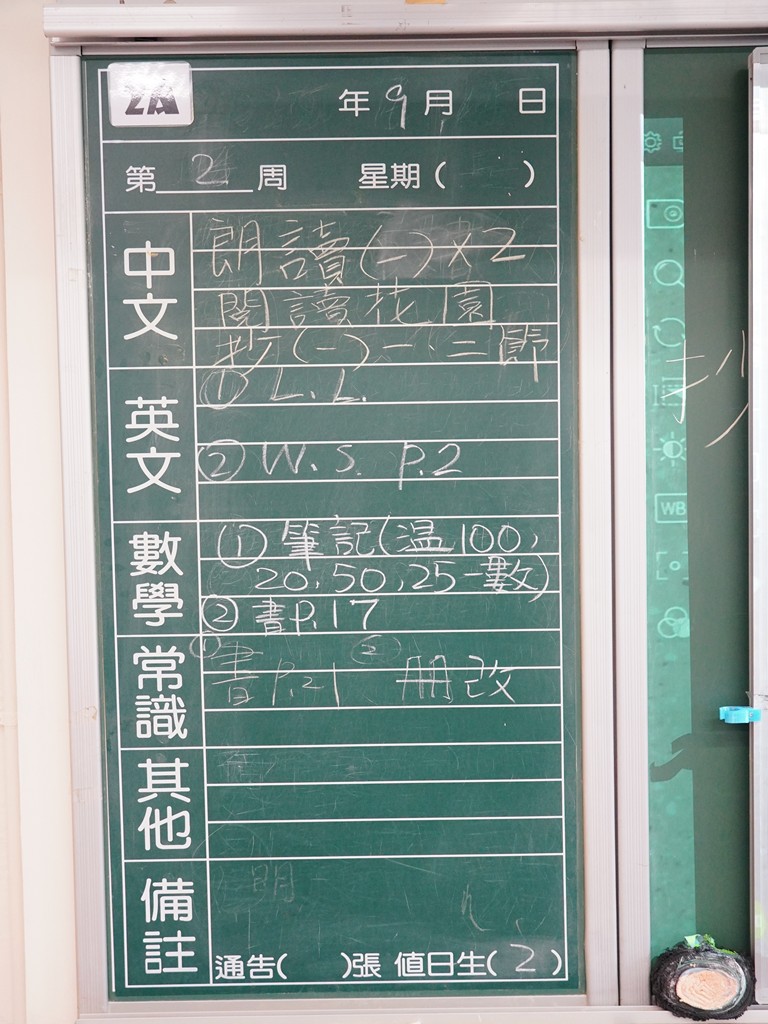 2A
年 9 月 日
第 2 周 星期 ( )
中文
朗讀(一)×2
閱讀花園
抄(一)一、二節
英文
① L.L.
② W.S. P.2
數學
① 筆記(温100,
20,50,25一數)
② 書P.17
常識
① 書P.21 ② 冊改
其他
備註
通告( )張 值日生( 2 )
抄
WB